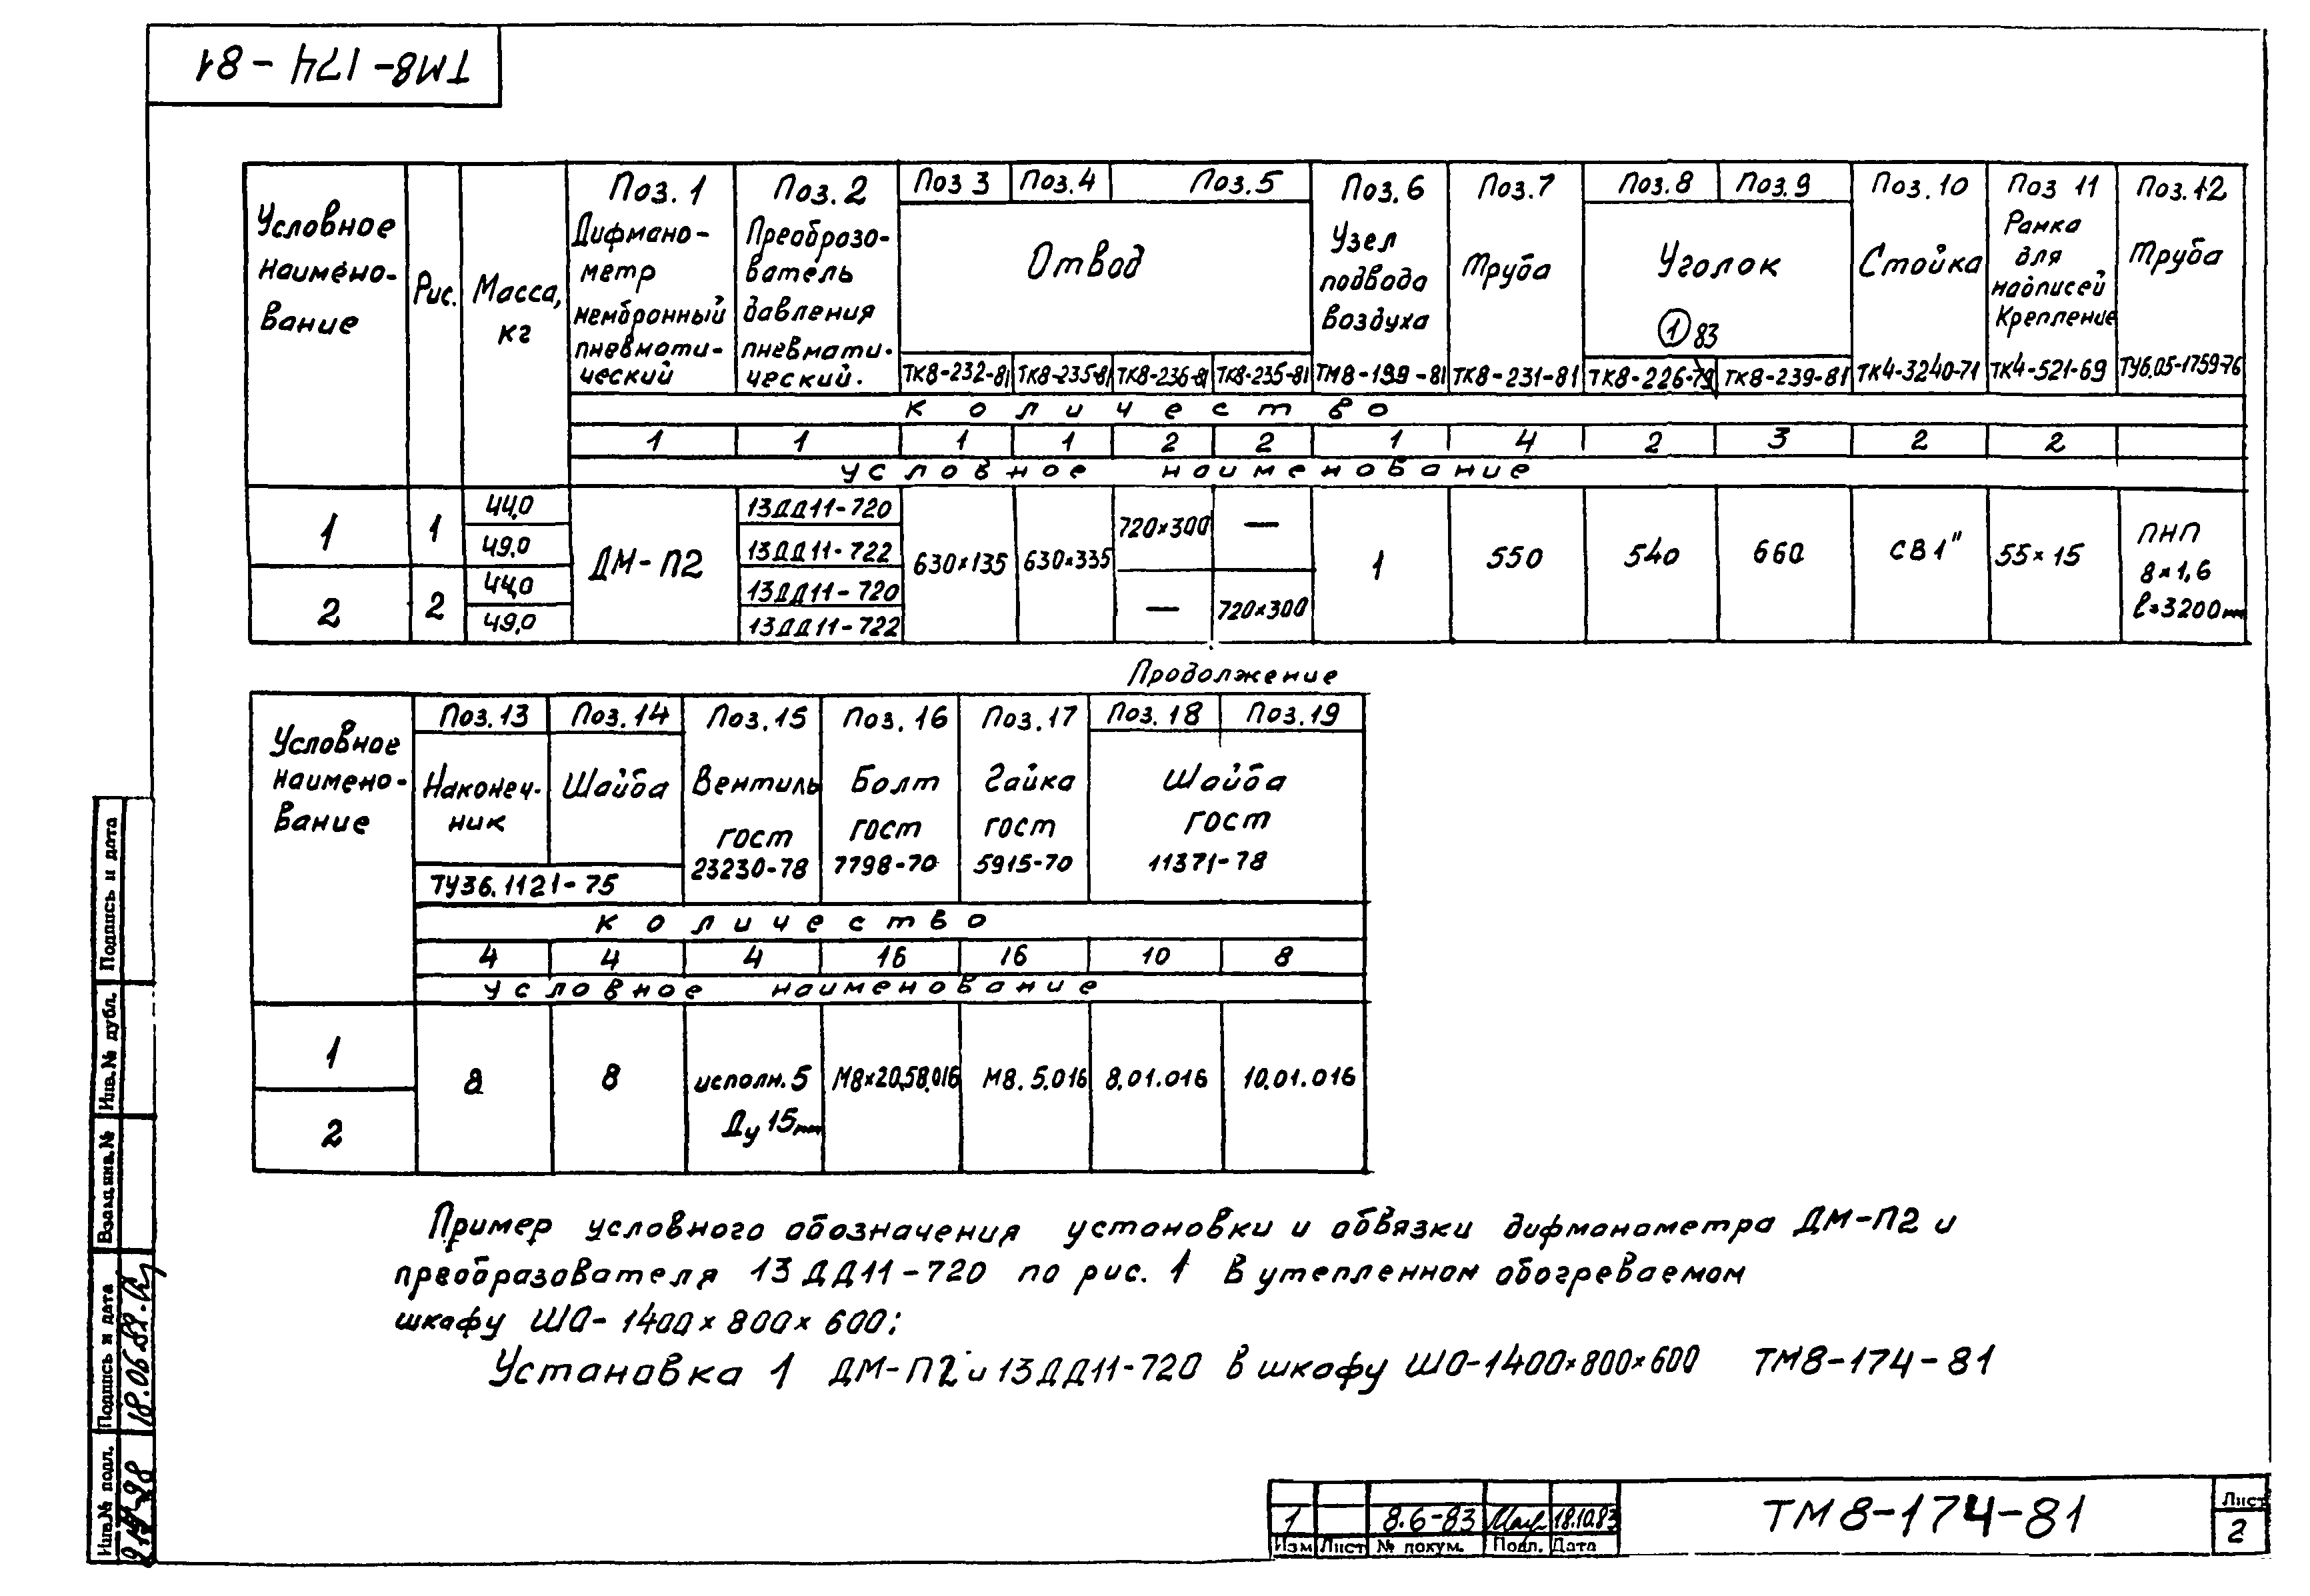 ТМ8-174-81
Условное наимено-вание
Рис.
Масса, кг
Поз. 1
Дифмано-метр мембранный пневмати-ческий
Поз. 2
Преобразо-ватель давления пневмати-ческий.
Поз 3
Поз. 4
Поз. 5
Отвод
ТК8-232-81
ТК8-235-81
ТК8-236-81
ТК8-235-81
Поз. 6
Узел подвода воздуха
ТМ8-199-81
Поз. 7
Труба
ТК8-231-81
Поз. 8
Поз. 9
Уголок
1 83
ТК8-226-79
ТК8-239-81
Поз. 10
Стойка
ТК4-3240-71
Поз 11
Рамка для надписей Крепление
ТК4-521-69
Поз. 12
Труба
ТУ6.05-1759-76
Количество
1 1 1 1 2 2 1 4 2 3 2 2
Условное наименование
1 1 44,0 13ДД11-720
49,0 13ДД11-722
2 2 44,0 13ДД11-720
49,0 13ДД11-722
ДМ-П2
630×135
630×335
720×300 —
— 720×300
1
550
540
660
СВ1"
55×15
ПНП
8×1,6
ℓ=3200мм
Продолжение
Условное наимено-вание
Поз. 13
Поз. 14
Наконеч-ник
Шайба
ТУ36.1121-75
Поз. 15
Вентиль
ГОСТ
23230-78
Поз. 16
Болт
ГОСТ
7798-70
Поз. 17
Гайка
ГОСТ
5915-70
Поз. 18
Поз. 19
Шайба
ГОСТ
11371-78
Количество
4 4 4 16 16 10 8
Условное наименование
1
2
8
8
исполн. 5
Ду 15мм
М8×20.58.016
М8.5.016
8.01.016
10.01.016
Пример условного обозначения установки и обвязки дифманометра ДМ-П2 и
преобразователя 13ДД11-720 по рис. 1 в утепленном обогреваемом
шкафу ШО-1400×800×600:
Установка 1 ДМ-П2 и 13ДД11-720 в шкафу ШО-1400×800×600 ТМ8-174-81
Подпись и дата
Инв.№ дубл.
Взам.инв.№
Подпись и дата
18.06.82
Инв.№ подл.
1 8.6-83 18.10.83
Изм Лист № докум. Подп. Дата
ТМ8-174-81
Лист
2